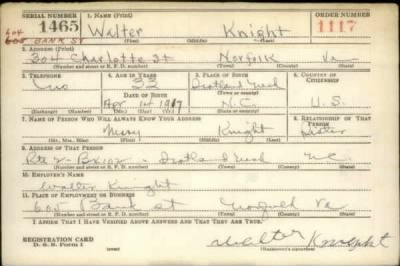 SERIAL NUMBER 1. NAME (Print) ORDER NUMBER
1465 Walter Knight 1117
604
605 BANK ST
(First) (Middle) (Last)
2. ADDRESS (Print)
304 Charlotte St Norfolk Va
(Number and street or R. F. D. number) (Town) (County) (State)
3. TELEPHONE 4. AGE IN YEARS 5. PLACE OF BIRTH 6. COUNTRY OF CITIZENSHIP
no 23 Scotland Neck
DATE OF BIRTH (Town or county)
Apr 14 1917 N.C. U.S.
(Exchange) (Number) (Mo.) (Day) (Yr.) (State or country)
7. NAME OF PERSON WHO WILL ALWAYS KNOW YOUR ADDRESS 8. RELATIONSHIP OF THAT PERSON
Mary Knight Sister
(Mr., Mrs., Miss) (First) (Middle) (Last)
9. ADDRESS OF THAT PERSON
Rte 2 - Box 102 - Scotland Neck N.C.
(Number and street or R. F. D. number) (Town) (County) (State)
10. EMPLOYER'S NAME
Walter Knight
11. PLACE OF EMPLOYMENT OR BUSINESS
605 Bank st Norfolk Va
(Number and street or R. F. D. number) (Town) (County) (State)
I AFFIRM THAT I HAVE VERIFIED ABOVE ANSWERS AND THAT THEY ARE TRUE.
REGISTRATION CARD
D. S. S. Form 1
Walter Knight
(Registrant's signature)